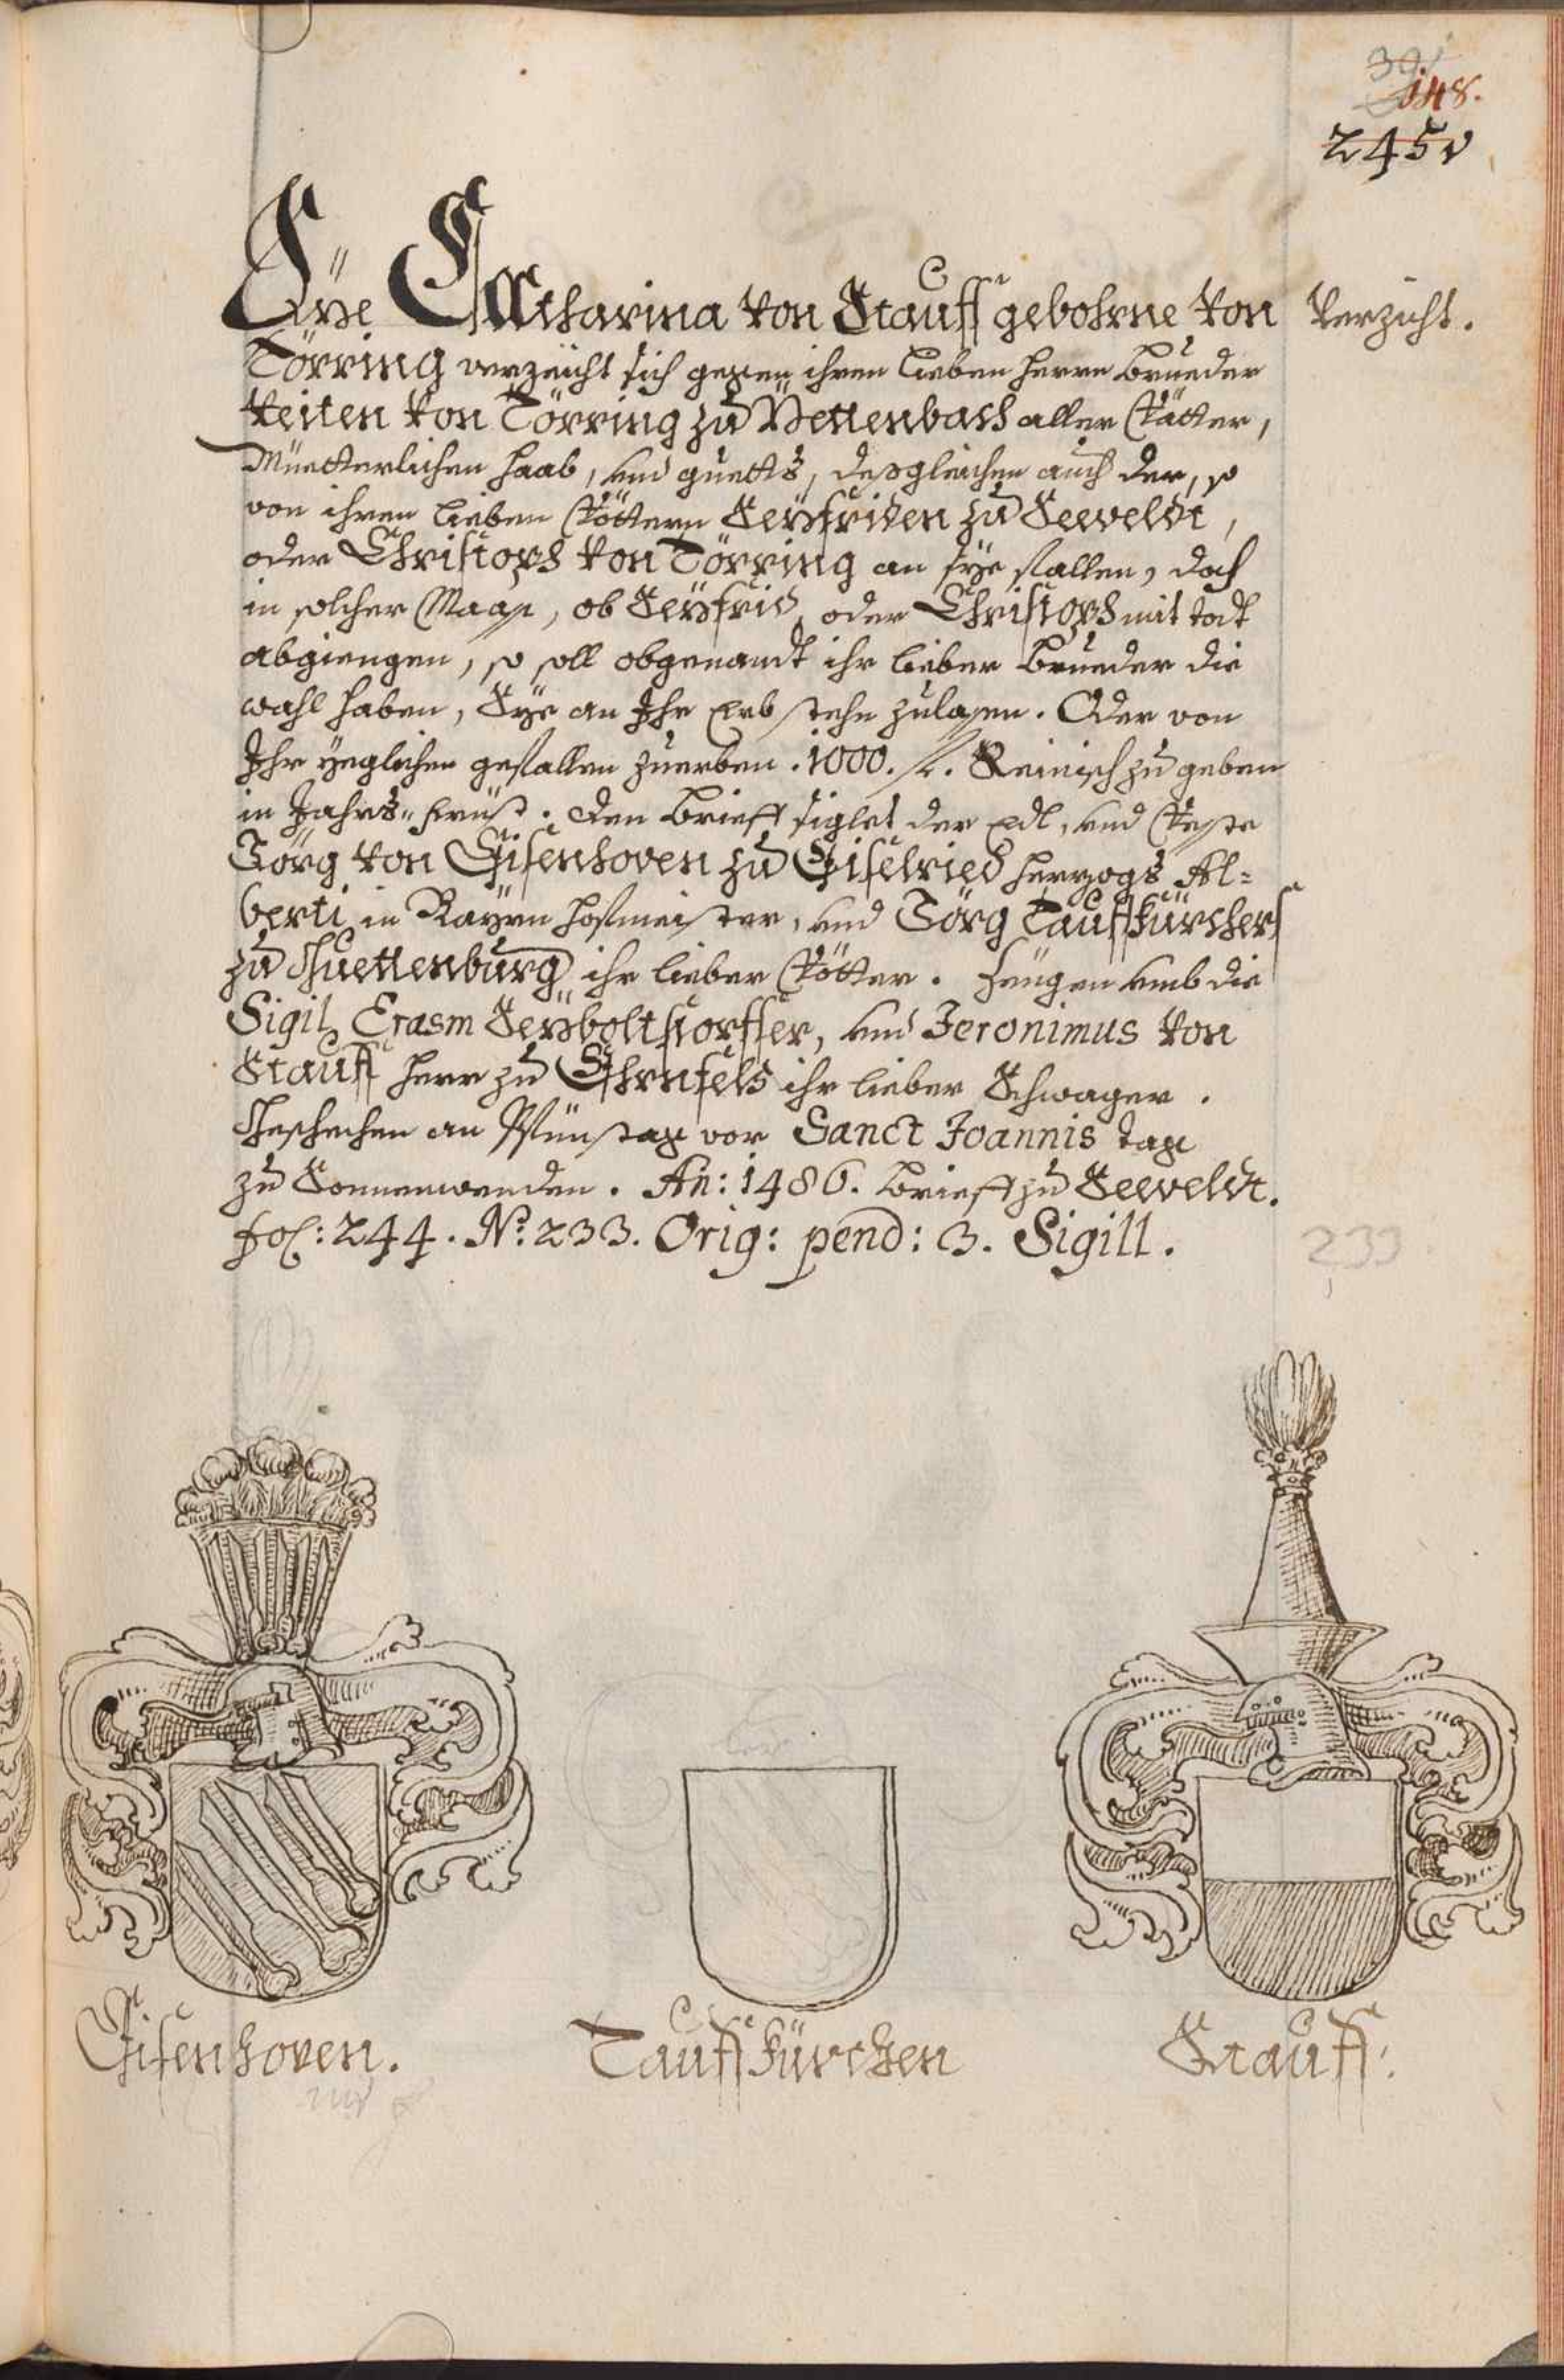 148.
245v
Catharina von Stauff gebohrne von
Verzicht.
Törring verzeicht sich gegen ihren lieben herrn Brueder
Veiten von Törring zu Pettenbach aller Vätter,
Müetterlichen haab, und guetts, dessgleichen auch der, so
von ihren lieben Vöttern Seyfriden zu Seeveldt,
oder Christoph von Törring an sye fallen, doch
in solcher Maass, ob Seyfrid, oder Christoph mit todt
abgiengen, so soll obgenandt ihr lieber Brueder die
wahl haben, Sye an Ihr Erb stehn zulassen. Oder von
Ihr yeglichen gefallen zuerben .1000. fl. Reinisch zu geben
in Jahrs-frist. Den Brieff siglet der Edl, und Veste
Görg von Eisenhoven zu Eiselried herzogs Al=
berti in Bayrn hofmeister, und Görg Tauffkürcher
zu Guettenburg ihr lieber Vötter. Zeugen umb die
Sigil Erasm Seyboltstorffer, und Jeronimus von
Stauff herr zu Ehrnfels ihr lieber Schwager.
Geschechen an Pfinstag vor Sanct Joannis tag
zu Sonnenwenden. An: 1486. Brieff zu Seeveldt.
fol: 244. No: 233. Orig: pend: 3. Sigill.
233
Eisenhoven.
Tauffkürchen
Stauff.